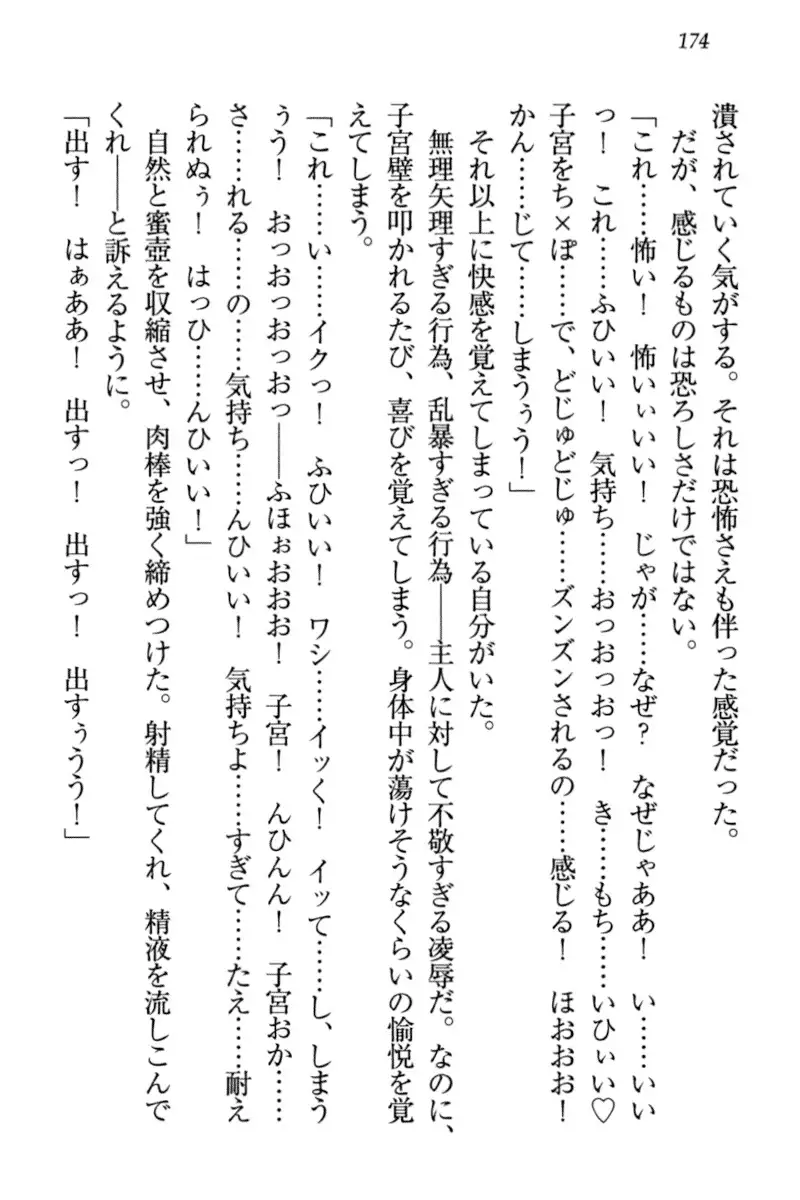 174
潰されていく気がする。それは恐怖さえも伴った感覚だった。
だが、感じるものは恐ろしさだけではない。
「これ……怖い！　怖いぃいい！　じゃが……なぜ？　なぜじゃああ！　い……いい
っ！　これ……ふひいい！　気持ち……おっおっおっ！　き……もち……いひぃい♡
子宮をち×ぽ……で、どじゅどじゅ……ズンズンされるの……感じる！　ほおおお！
かん……じて……しまうぅう！」
それ以上に快感を覚えてしまっている自分がいた。
無理矢理すぎる行為、乱暴すぎる行為――主人に対して不敬すぎる凌辱だ。なのに、
子宮壁を叩かれるたび、喜びを覚えてしまう。身体中が蕩けそうなくらいの愉悦を覚
えてしまう。
「これ……い……イクっ！　ふひいい！　ワシ……イッく！　イッて……し、しまう
ぅう！　おっおっおっおっ――ふほぉおおお！　子宮！　んひんん！　子宮おか……
さ……れる……の……気持ち……んひいい！　気持ちよ……すぎて……たえ……耐え
られぬぅ！　はっひ……んひいい！」
自然と蜜壺を収縮させ、肉棒を強く締めつけた。射精してくれ、精液を流しこんで
くれ――と訴えるように。
「出す！　はぁああ！　出すっ！　出すっ！　出すぅうう！」